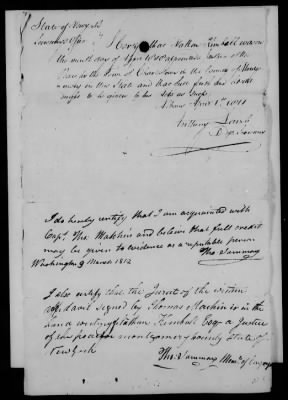 State of New York
Secretary's Office } I Certify that Nathan Kimball was on
the ninth day of April 1810 appointed Justice of the
Peace in the Town of in the County of Montgo-
mery in this State and that full faith and Credit
ought to be given to his Acts as such
Albany April 1st 1811
Anthony Lamb
Dep. Secretary
I do hereby certify that I am acquainted with
Capt. Thos. Machin and believe that full credit
may be given to evidence as a reputable person
Washington 9 March 1812 Tho Sammons
I also certify that the Jurat of the within
affidavit signed by Thomas Machin is in the
hand writing of Nathan Kimball Esq. a Justice
of the peace for montgomery County State of
New york
Tho. Sammons Mem. of Congress